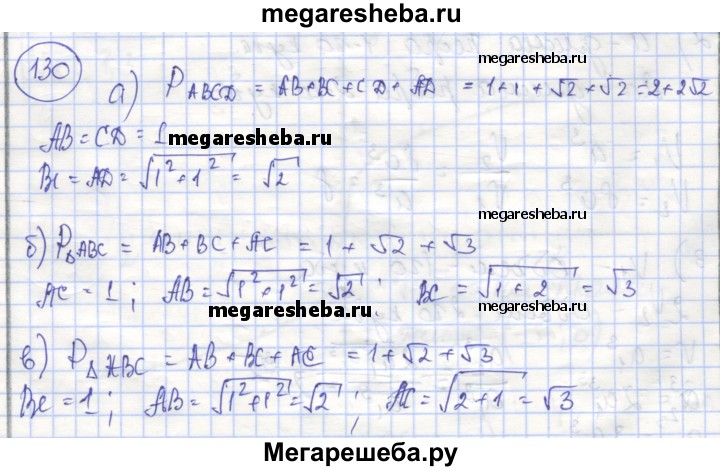 megaresheba.ru
130
megaresheba.ru
а) P ABCD = AB+BC+CD+AD = 1+1+√2+√2=2+2√2
AB=CD=1
megaresheba.ru
BC=AD=√1²+1² = √2
megaresheba.ru
б) P△ABC = AB+BC+AC = 1+√2+√3
AC=1; AB=√1²+1²=√2; BC=√1+2=√3
megaresheba.ru
megaresheba.ru
в) P△ABC = AB+BC+AC = 1+√2+√3
BC=1; AB=√1²+1²=√2; AC=√2+1=√3
Мегарешеба.ру